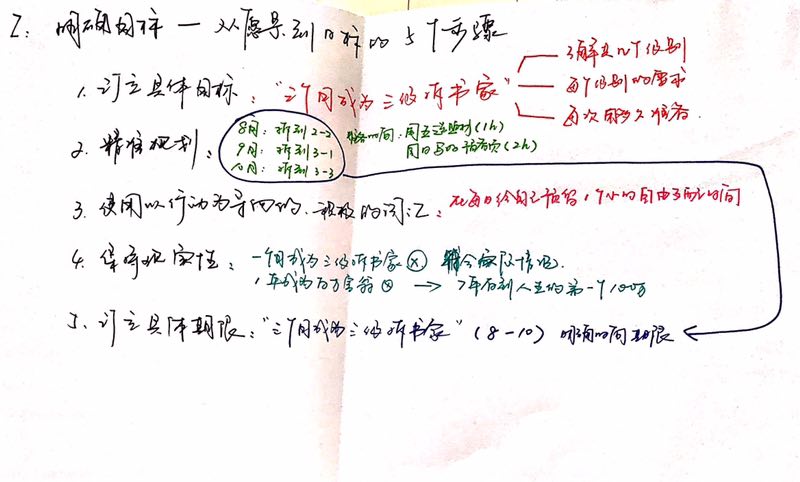 2. 明确目标 — 从愿景到目标的5个步骤
1. 订立具体目标：“三个月成为三级拆书家”
了解其几个级别
每个级别的要求
每次用多久准备
2. 精准规划：
8月：拆到2-2
9月：拆到3-1
10月：拆到3-3
时间：周五(1h)
周日(2h)
3. 使用以行动为导向的、积极的词汇：在每日给自己预留1个小时自由的时间
4. 保守现实性：一个月成为三级拆书家 ⊗ 符合实际情况.
1年成为百万富翁 ⊗ → 7年后到人生的第一个100万
5. 订立具体期限：“三个月成为三级拆书家”（8-10）明确的时间期限